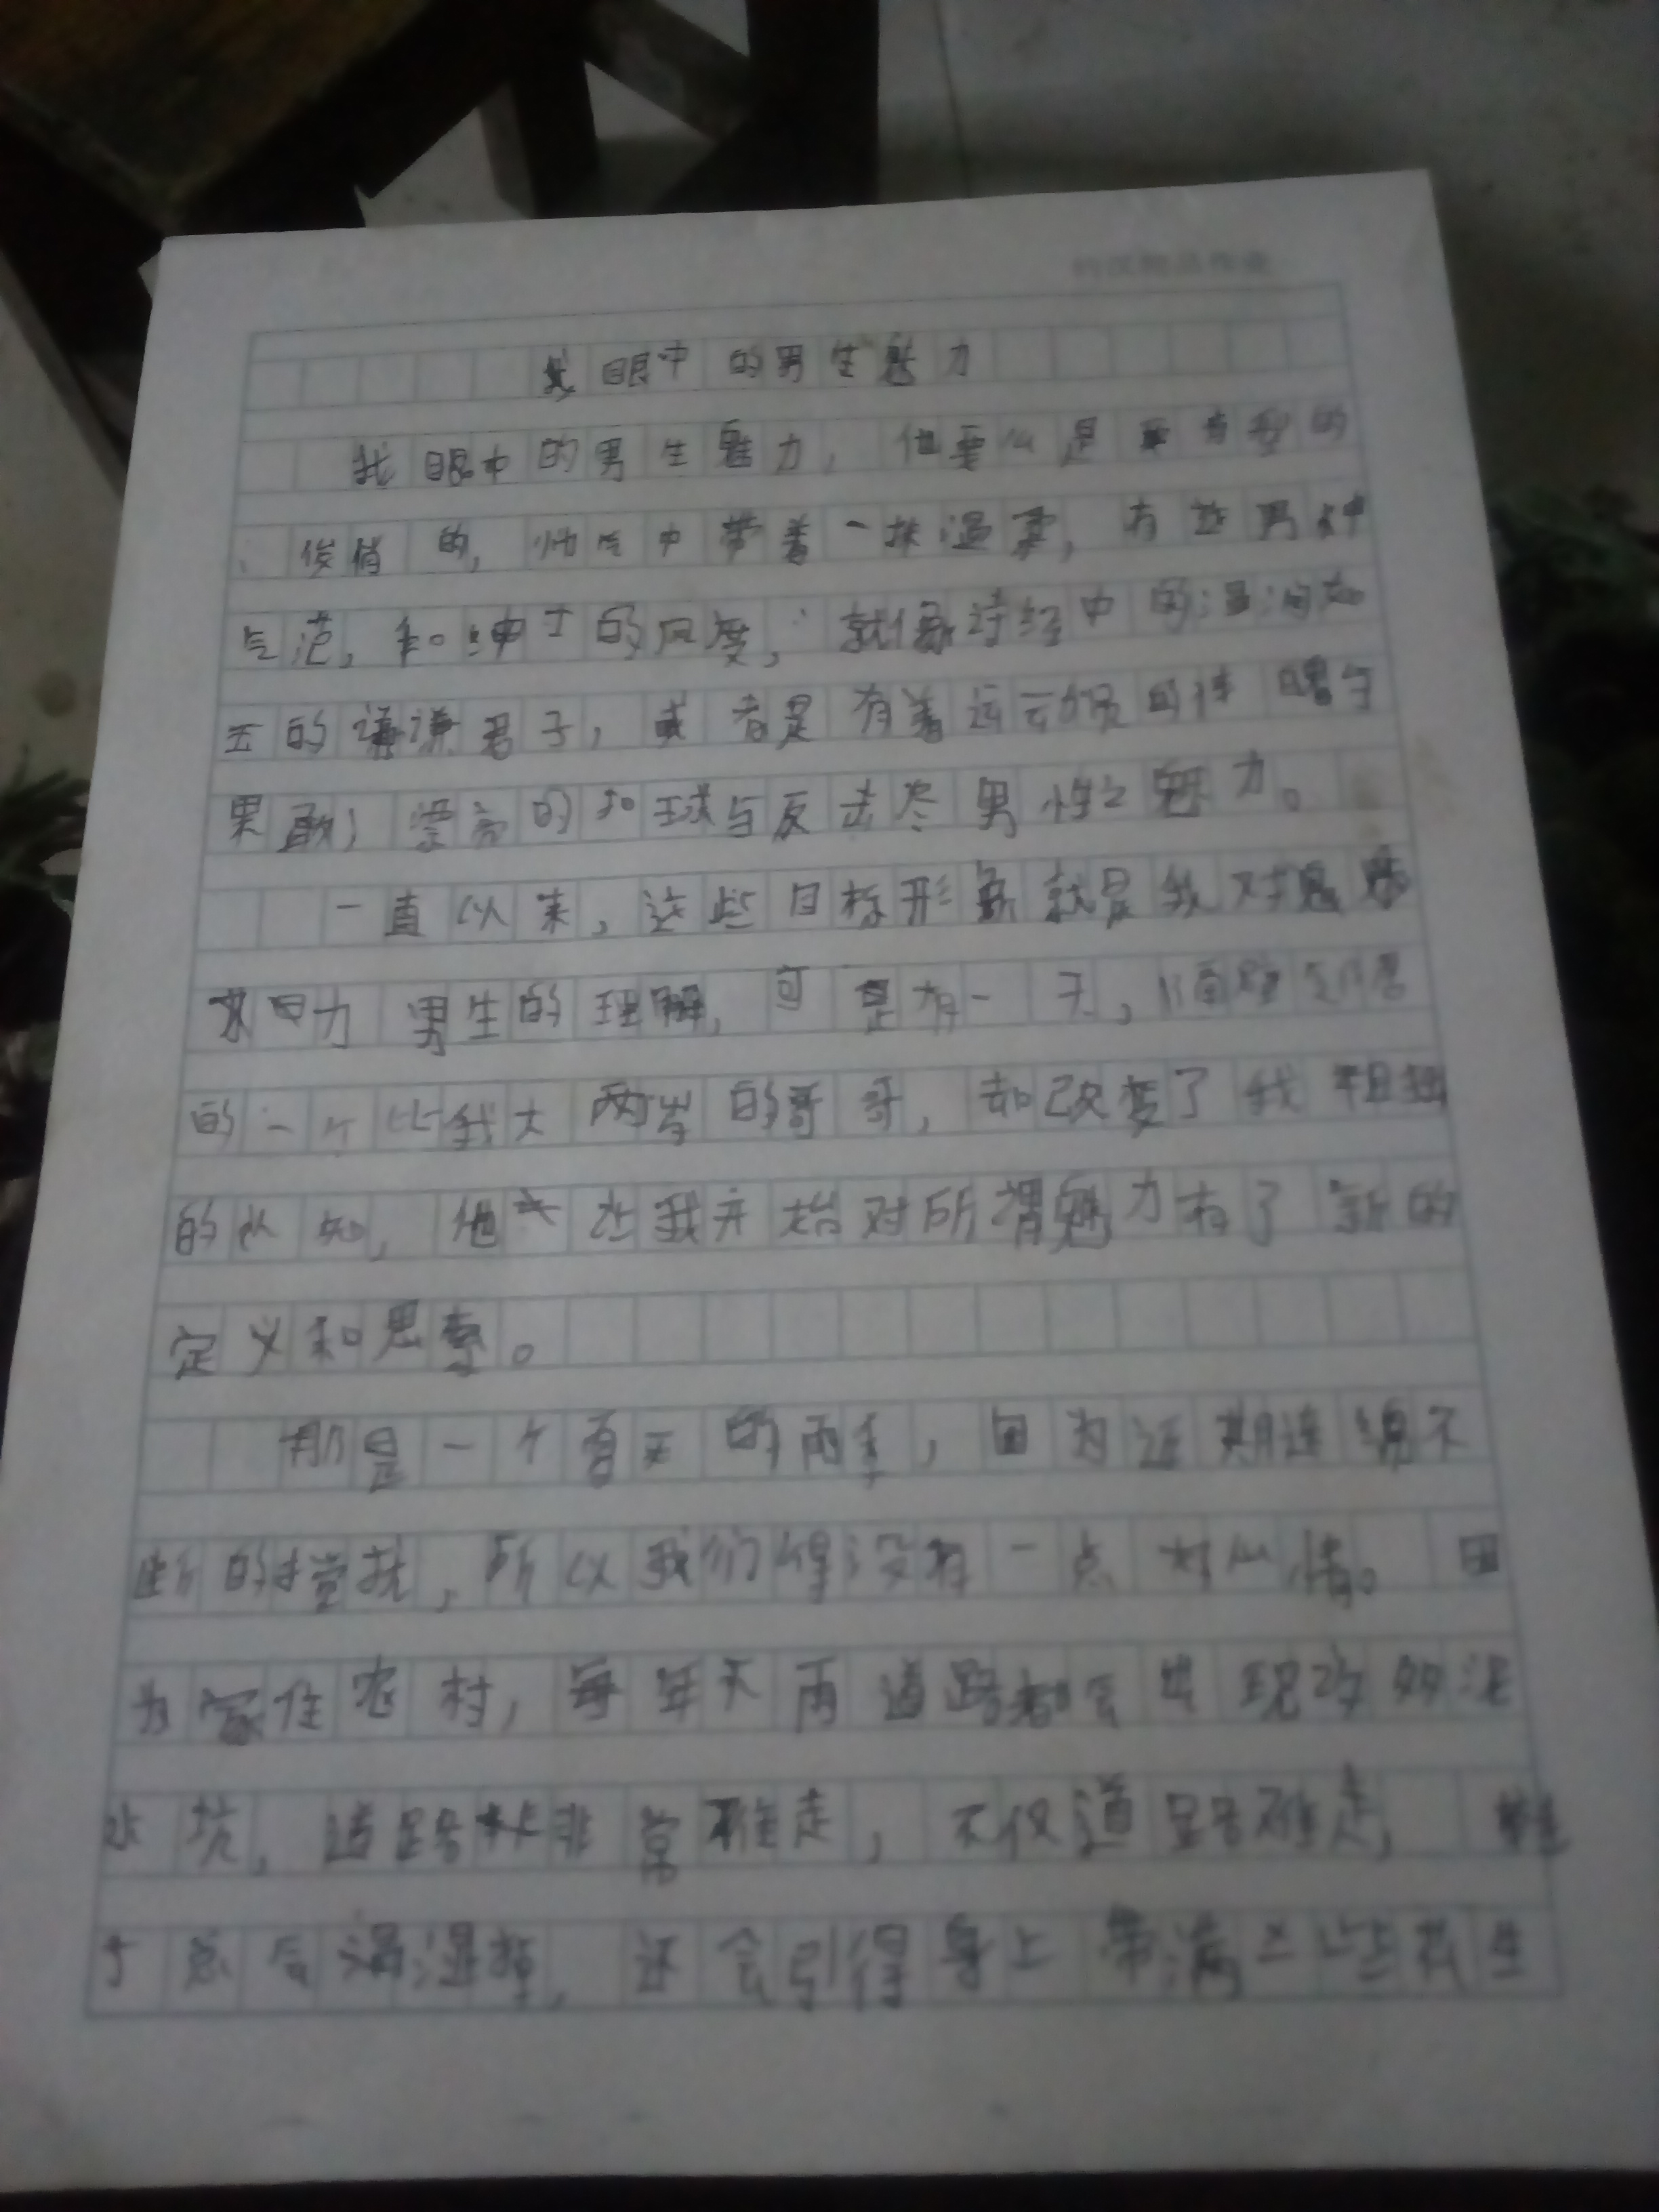 我眼中的男生魅力
我眼中的男生魅力，他要么是要有型的
、俊俏的，帅气中带着一抹温柔，有这男神
气范，和绅士的风度，就像诗经中的温润如
玉的谦谦君子，或者是有着运动员的
果敢，漂亮的扣球与反击尽男性之魅力。
一直以来，这些目标形象就是我对
力男生的理解，可是有一天，
的一个比我大两岁的哥哥，却改变了我
的认知，他我开始对所谓魅力有了新的
定义和思考。
那是一个夏天的雨季，因为近期连绵不
断的，所以我们得没有一点好心情。因
为家住农村，每年天雨道路都会出现的泥
水坑，道路非常难走，不仅道路难走，
于，还会引得身上带满